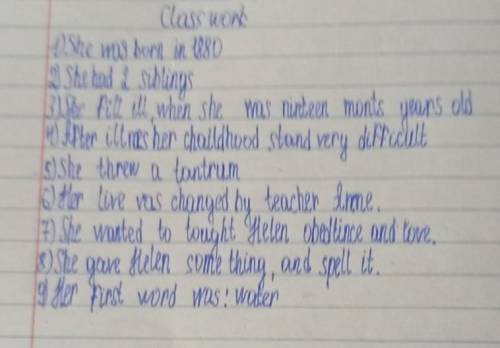 Class work
1) She was born in 1880
2) She had 2 siblings
3) She fill ill, when she was ninteen monts years old
4) After illnes her chaildhood stand very difficult
5) She threw a tantrum
6) Her live vas changed by teacher
7) She wanted to tought Helen obedince and love.
8) She gave Helen some thing, and spell it.
9) Her first word was: water